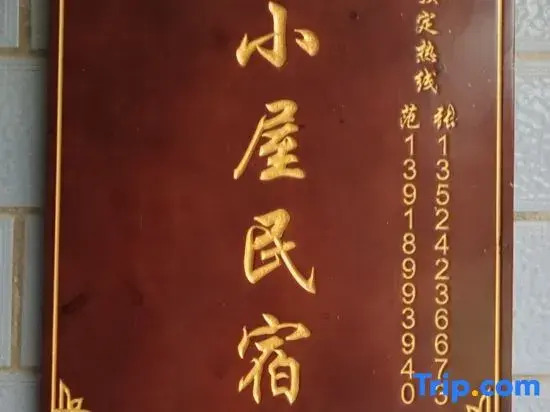 小屋民宿
定热线
张13524236673
范13918993940
Trip.com